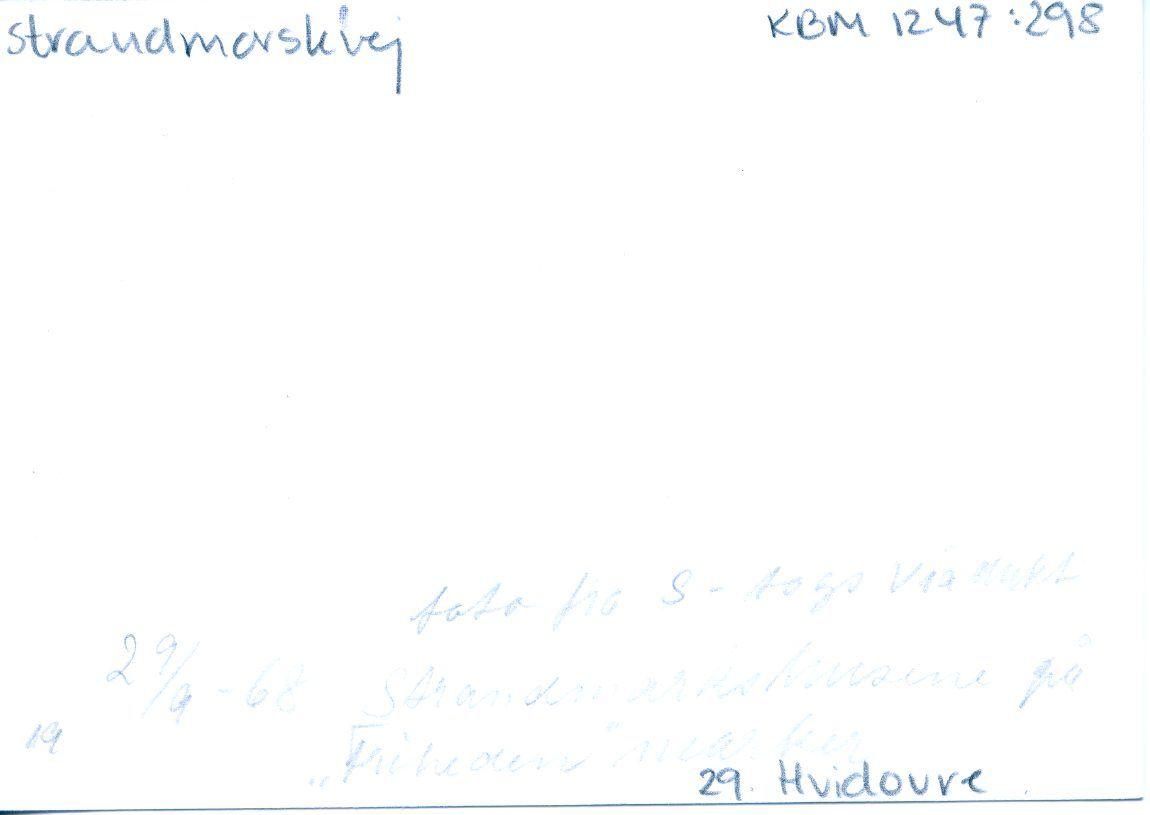 strandmorskvej
KBM 1247:298
foto fra S-togs Viadukt
29/9-68 Strandmarkshusene på
19
„Friheden" marker
29. Hvidovre